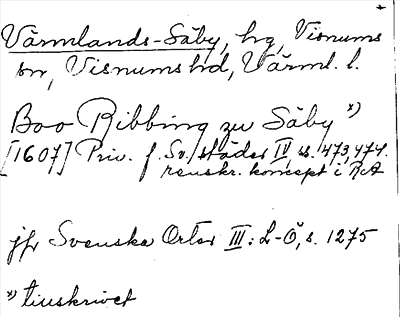 Värmlands-Säby, hg, Visnums
sn, Visnums hd, Värml. l.
Boo Ribbing zu Säby x)
[1607] Priv. f. Sv. städer IV s. 473, 474.
renskr. koncept i RA
jfr Svenska Orter III: L-Ö, s. 1275
x) tiuskrivet